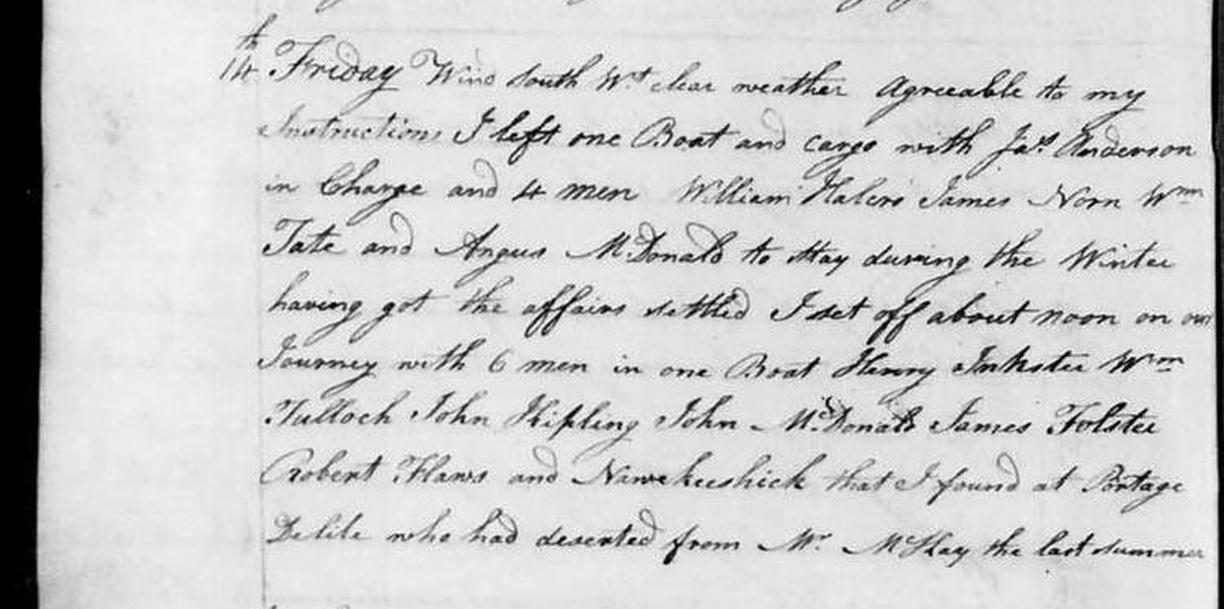 14th Friday Wind South Wt clear weather Agreeable to my
Instructions I left one Boat and cargo with Jas Anderson
in Charge and 4 men William Halcro James Norn Wm
Tate and Angus McDonald to stay during the Winter
having got the affairs settled I set off about noon on our
Journey with 6 men in one Boat Henry Inkster Wm
Tulloch John Kipling John McDonald James Folster
Robert Flaws and Nawekeeshick that I found at Portage
Delile who had deserted from Mr. McKay the last summer